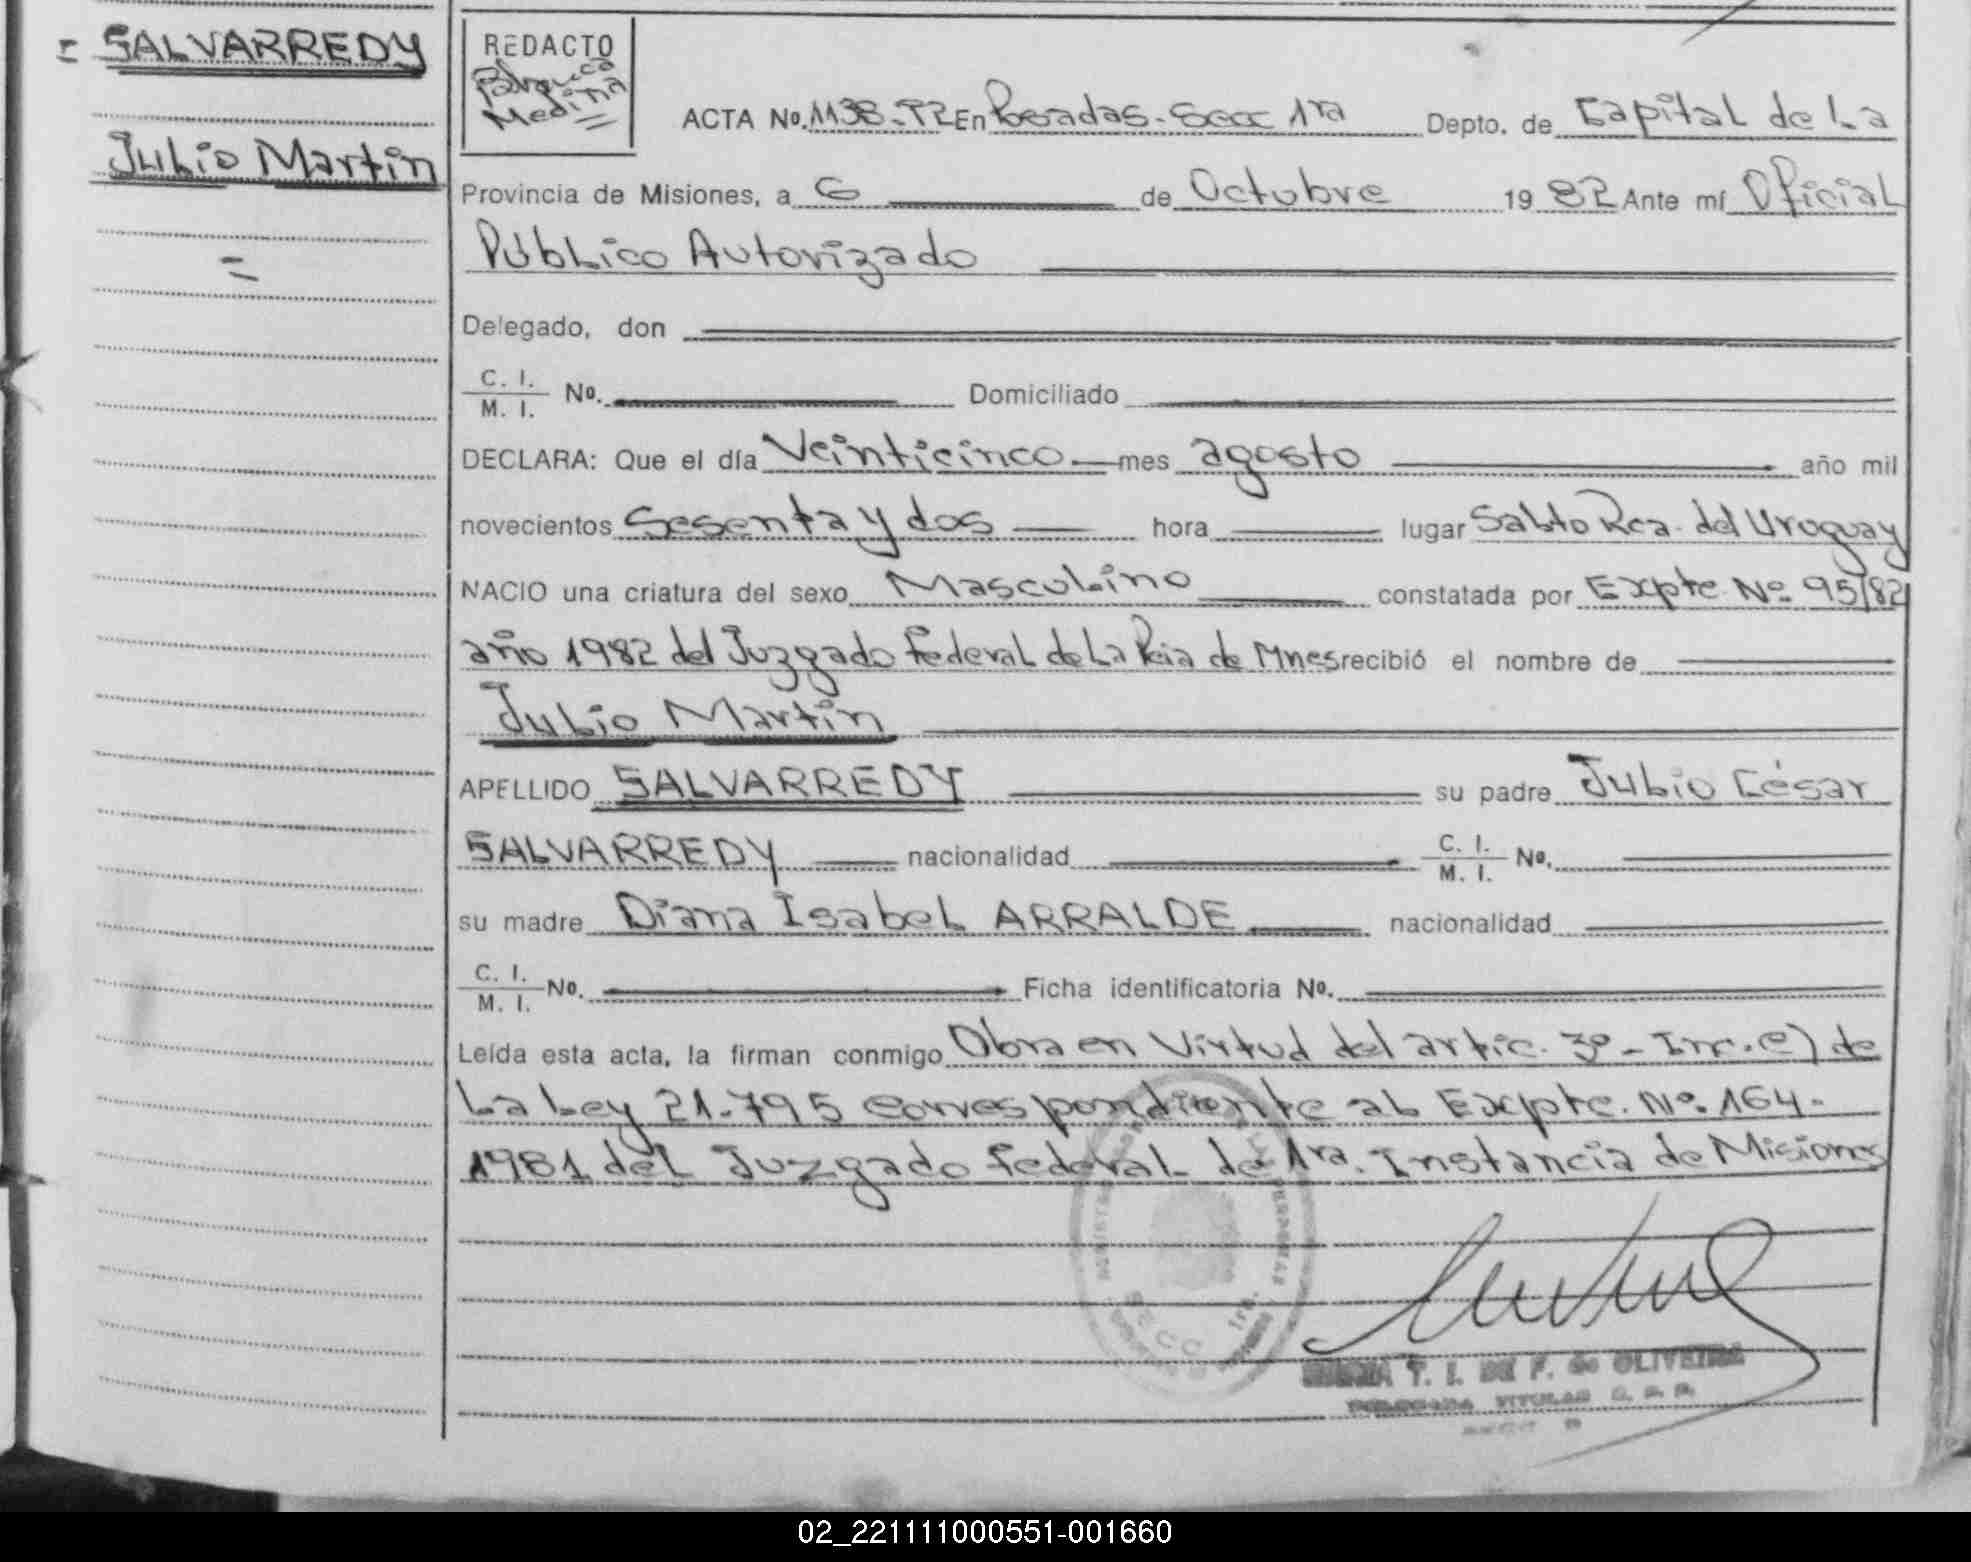 = SALVARREDY
Julio Martin
=
REDACTO
Medina
ACTA No. 1138-T2 En Posadas-Secc 1ra Depto. de Capital de La
Provincia de Misiones, a 6 de Octubre 1982 Ante mí Oficial
Público Autorizado
Delegado, don
C. I.
M. I. No. Domiciliado
DECLARA: Que el día Veinticinco mes agosto año mil
novecientos Sesenta y dos hora lugar Salto Rca. del Uruguay
NACIO una criatura del sexo Masculino constatada por Expte. Nº 95/82
año 1982 del Juzgado Federal de La Pcia de Mnes recibió el nombre de
Julio Martin
APELLIDO SALVARREDY su padre Julio César
SALVARREDY nacionalidad C. I.
M. I. No.
su madre Diana Isabel ARRALDE nacionalidad
C. I.
M. I. No. Ficha identificatoria No.
Leída esta acta, la firman conmigo Obra en Virtud del artic. 3º - Inc. e) de
La Ley 21.795 correspondiente al Expte. Nº 164-
1981 del Juzgado Federal de 1ra. Instancia de Misiones
SECC 1ra.
T. I. DE F. de OLIVEIRA
TITULAR
02_221111000551-001660